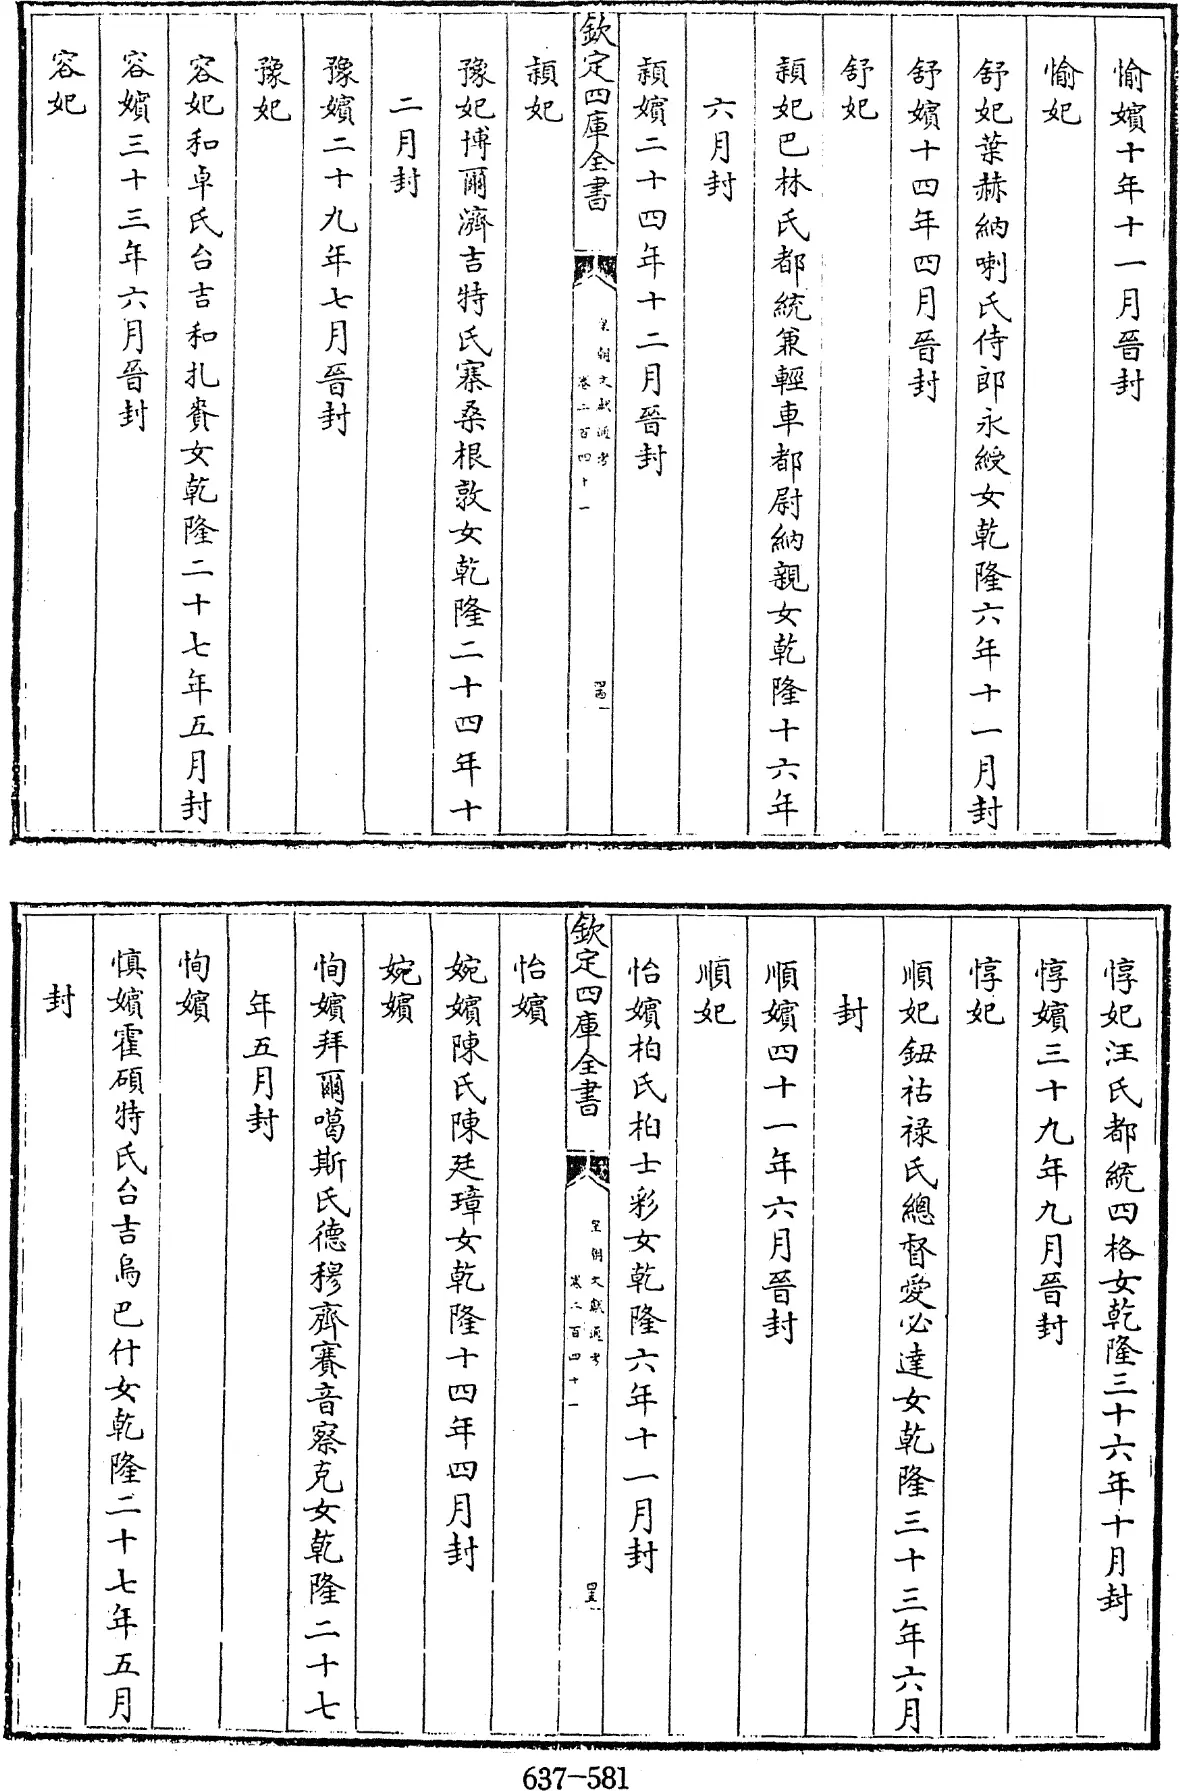 愉嬪十年十一月晉封
愉妃
舒妃葉赫納喇氏侍郎永綬女乾隆六年十一月封
舒嬪十四年四月晉封
舒妃
頴妃巴林氏都統兼輕車都尉納親女乾隆十六年
六月封
頴嬪二十四年十二月晉封
欽定四庫全書
皇朝文獻通考
卷二百四十一
頴妃
豫妃博爾濟吉特氏寨桑根敦女乾隆二十四年十
二月封
豫嬪二十九年七月晉封
豫妃
容妃和卓氏台吉和扎賚女乾隆二十七年五月封
容嬪三十三年六月晉封
容妃
惇妃汪氏都統四格女乾隆三十六年十月封
惇嬪三十九年九月晉封
惇妃
順妃鈕祜祿氏總督愛必達女乾隆三十三年六月
封
順嬪四十一年六月晉封
順妃
怡嬪柏氏柏士彩女乾隆六年十一月封
欽定四庫全書
皇朝文獻通考
卷二百四十一
怡嬪
婉嬪陳氏陳廷璋女乾隆十四年四月封
婉嬪
恂嬪拜爾噶斯氏德穆齊賽音察克女乾隆二十七
年五月封
恂嬪
慎嬪霍碩特氏台吉烏巴什女乾隆二十七年五月
封
637-581